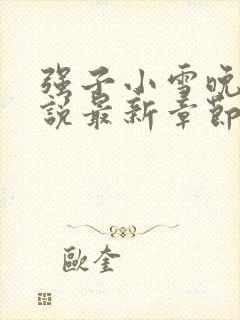 强子小雪晚
說最新章節
歐奎